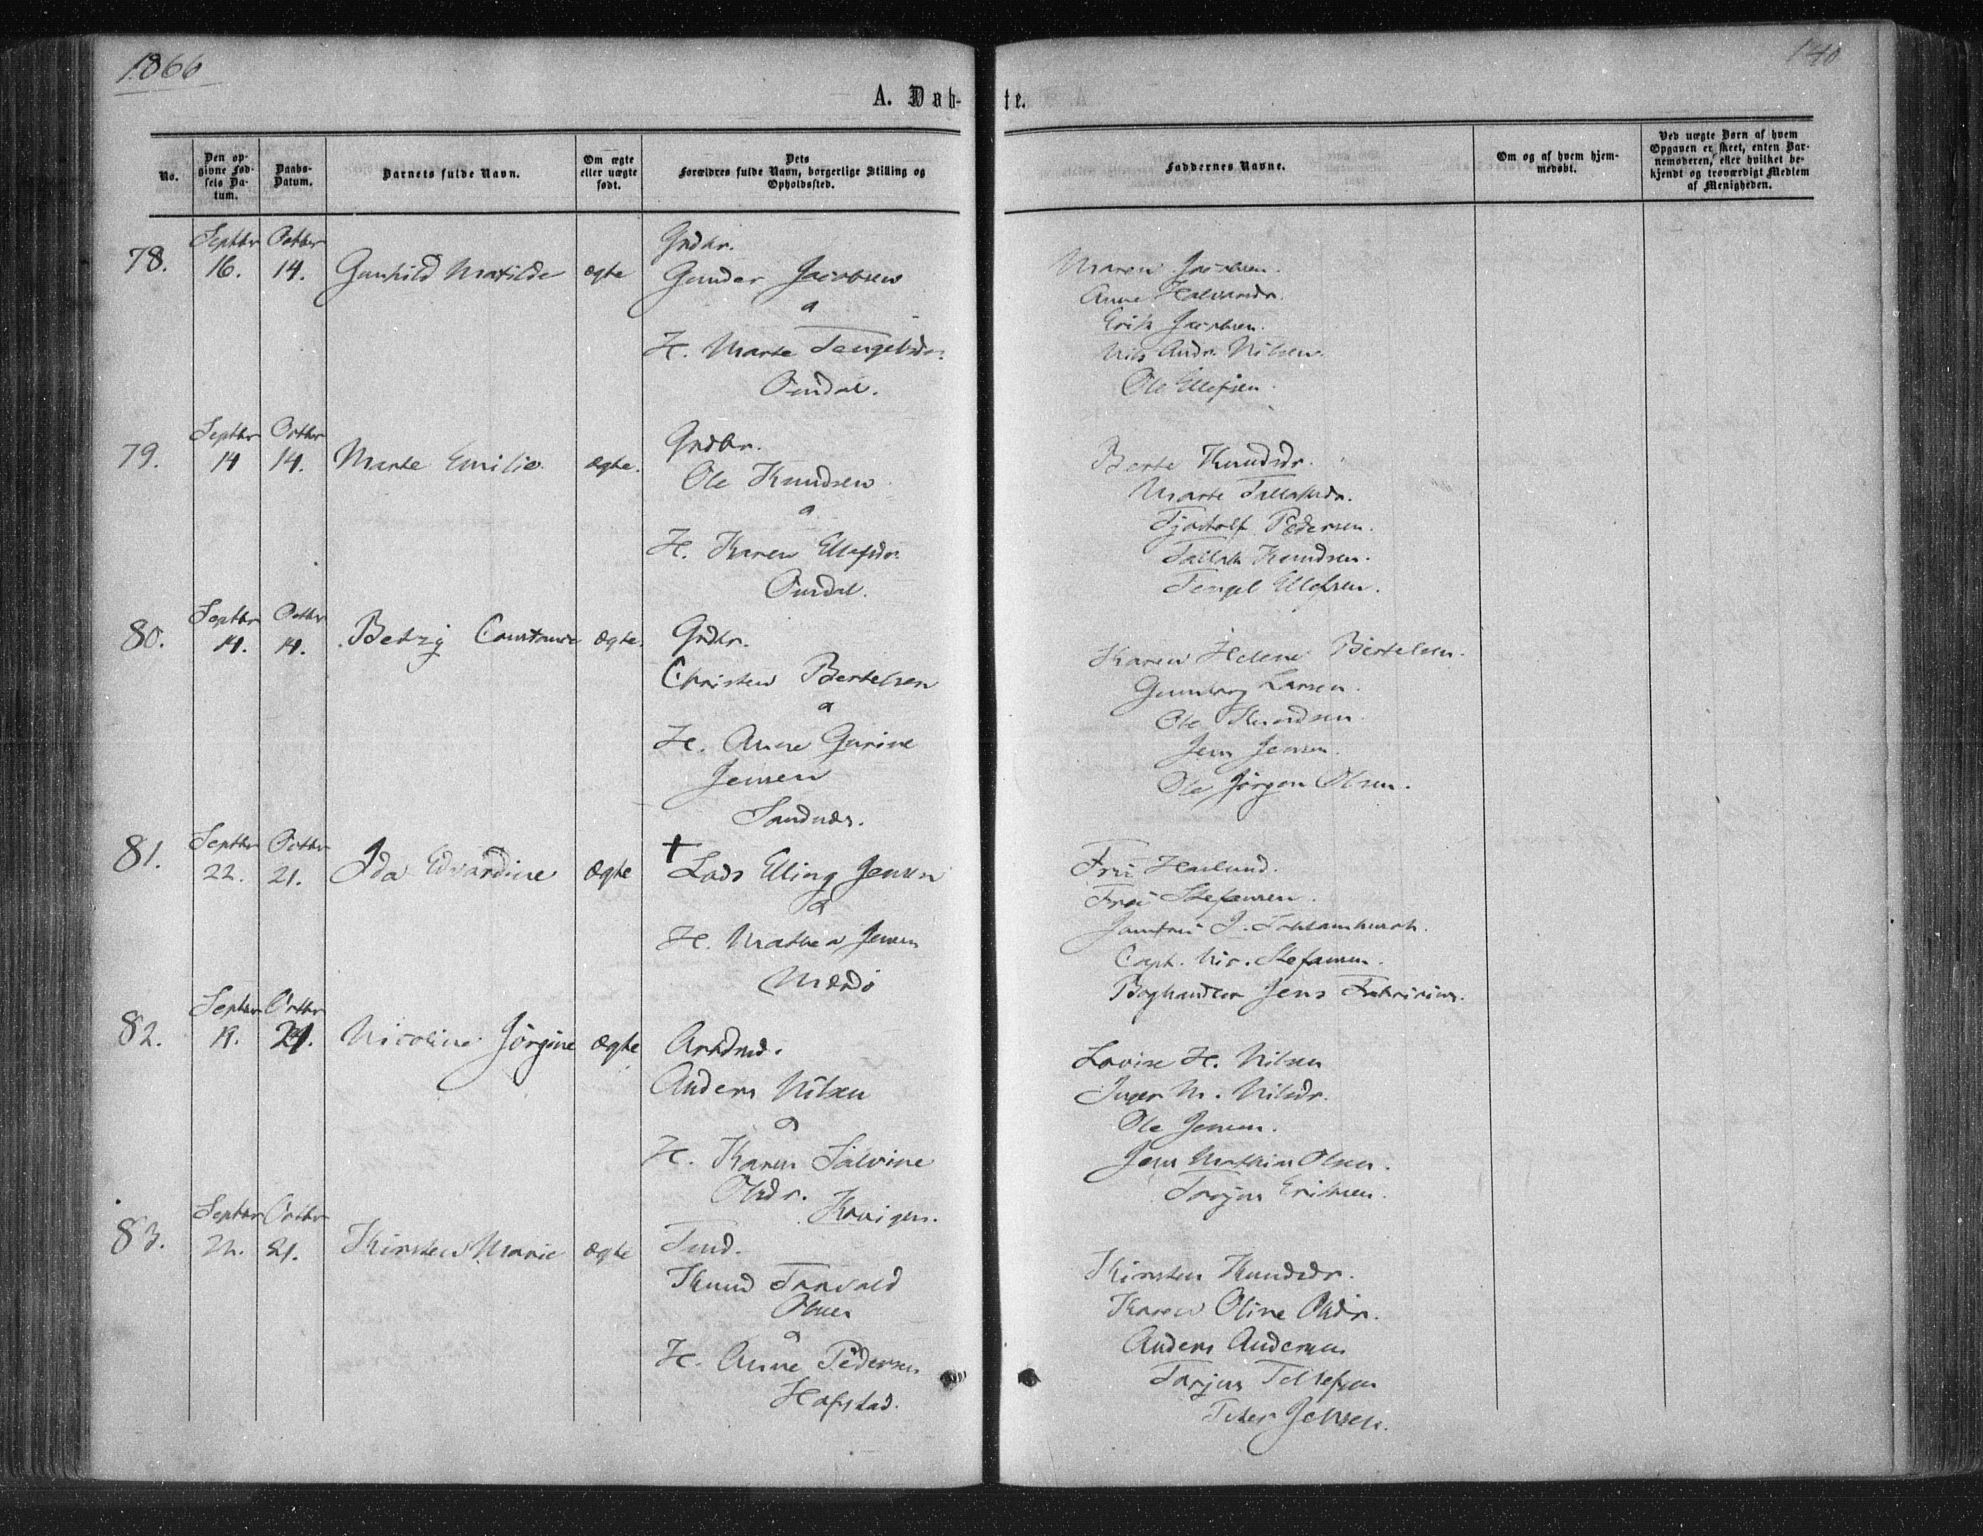 1866
140
A. Døb-
te.
No.
Den op-
givne Fød-
sels Da-
tum.
Daabs-
Datum.
Barnets fulde Navn.
Om ægte
eller uægte
født.
Dets
Forældres fulde Navn, borgerlige Stilling og
Opholdssted.
Faddernes Navne.
Om og af hvem hjem-
medøbt.
Ved uægte Børn af hvem
Opgaven er skeet, enten Bar-
nemoderen, eller hvilket be-
kjendt og troværdigt Medlem
af Menigheden.
78.
Septbr
16.
Octbr
14.
Gunhild Matilde
ægte
Grdbr.
Gunder Jacobsen
&
H. Marte Tengelsdr
Omdal.
Maren Jacobsen.
Anne Halvorsdr.
Erik Jacobsen.
Nils Andr. Nilsen.
Ole Ellefsen.
79.
Septbr
14
Octbr
14.
Marte Emilie
ægte.
Grdbr.
Ole Knudsen
&
H. Karen Ellefsdr
Omdal.
Berte Knudsdr.
Marte Tallaksdr.
Tjøstolf Pedersen.
Tallak Knudsen.
Tengel Ellefsen.
80.
Septbr
14.
Octbr
14.
Betzy Constance
Ægte.
Grdbr.
Christen Bertelsen
&
H. Anne Gurine
Jensen
Sandnæs.
Karen Helene Bertelsen.
Gunborg Larsen.
Ole Knudsen.
Jens Jensen.
Ole Jörgen Olsen.
81.
Septbr
22.
Octbr
21.
Ida Edvardine
Ægte
+
Lods Elling Jensen
&
H. Mathea Jensen
Mærdö
Frü
Frü Stefansen.
Jomfrü J.
Capt. Nic. Stefansen.
Boghandler Jens
82.
Septbr
19.
Octbr
21.
Nicoline Jörgine
Ægte
Arbdmd.
Anders Nilsen
&
H. Karen Salvine
Olsdr.
Lovise H. Nilsen
Inger M. Nilsdr.
Ole Jensen.
Jens Mathias Olsen.
Tarjus Eriksen.
83.
Septbr
Octbr
21.
Kirsten Marie
Ægte
Knud Tarvald
Olsen
&
H. Anne Pedersen
Hafstad.
Kirsten Knudsdr.
Karen Oline Olsdr.
Anders Andersen
Tarjus Tellefsen
Peter Jensen.